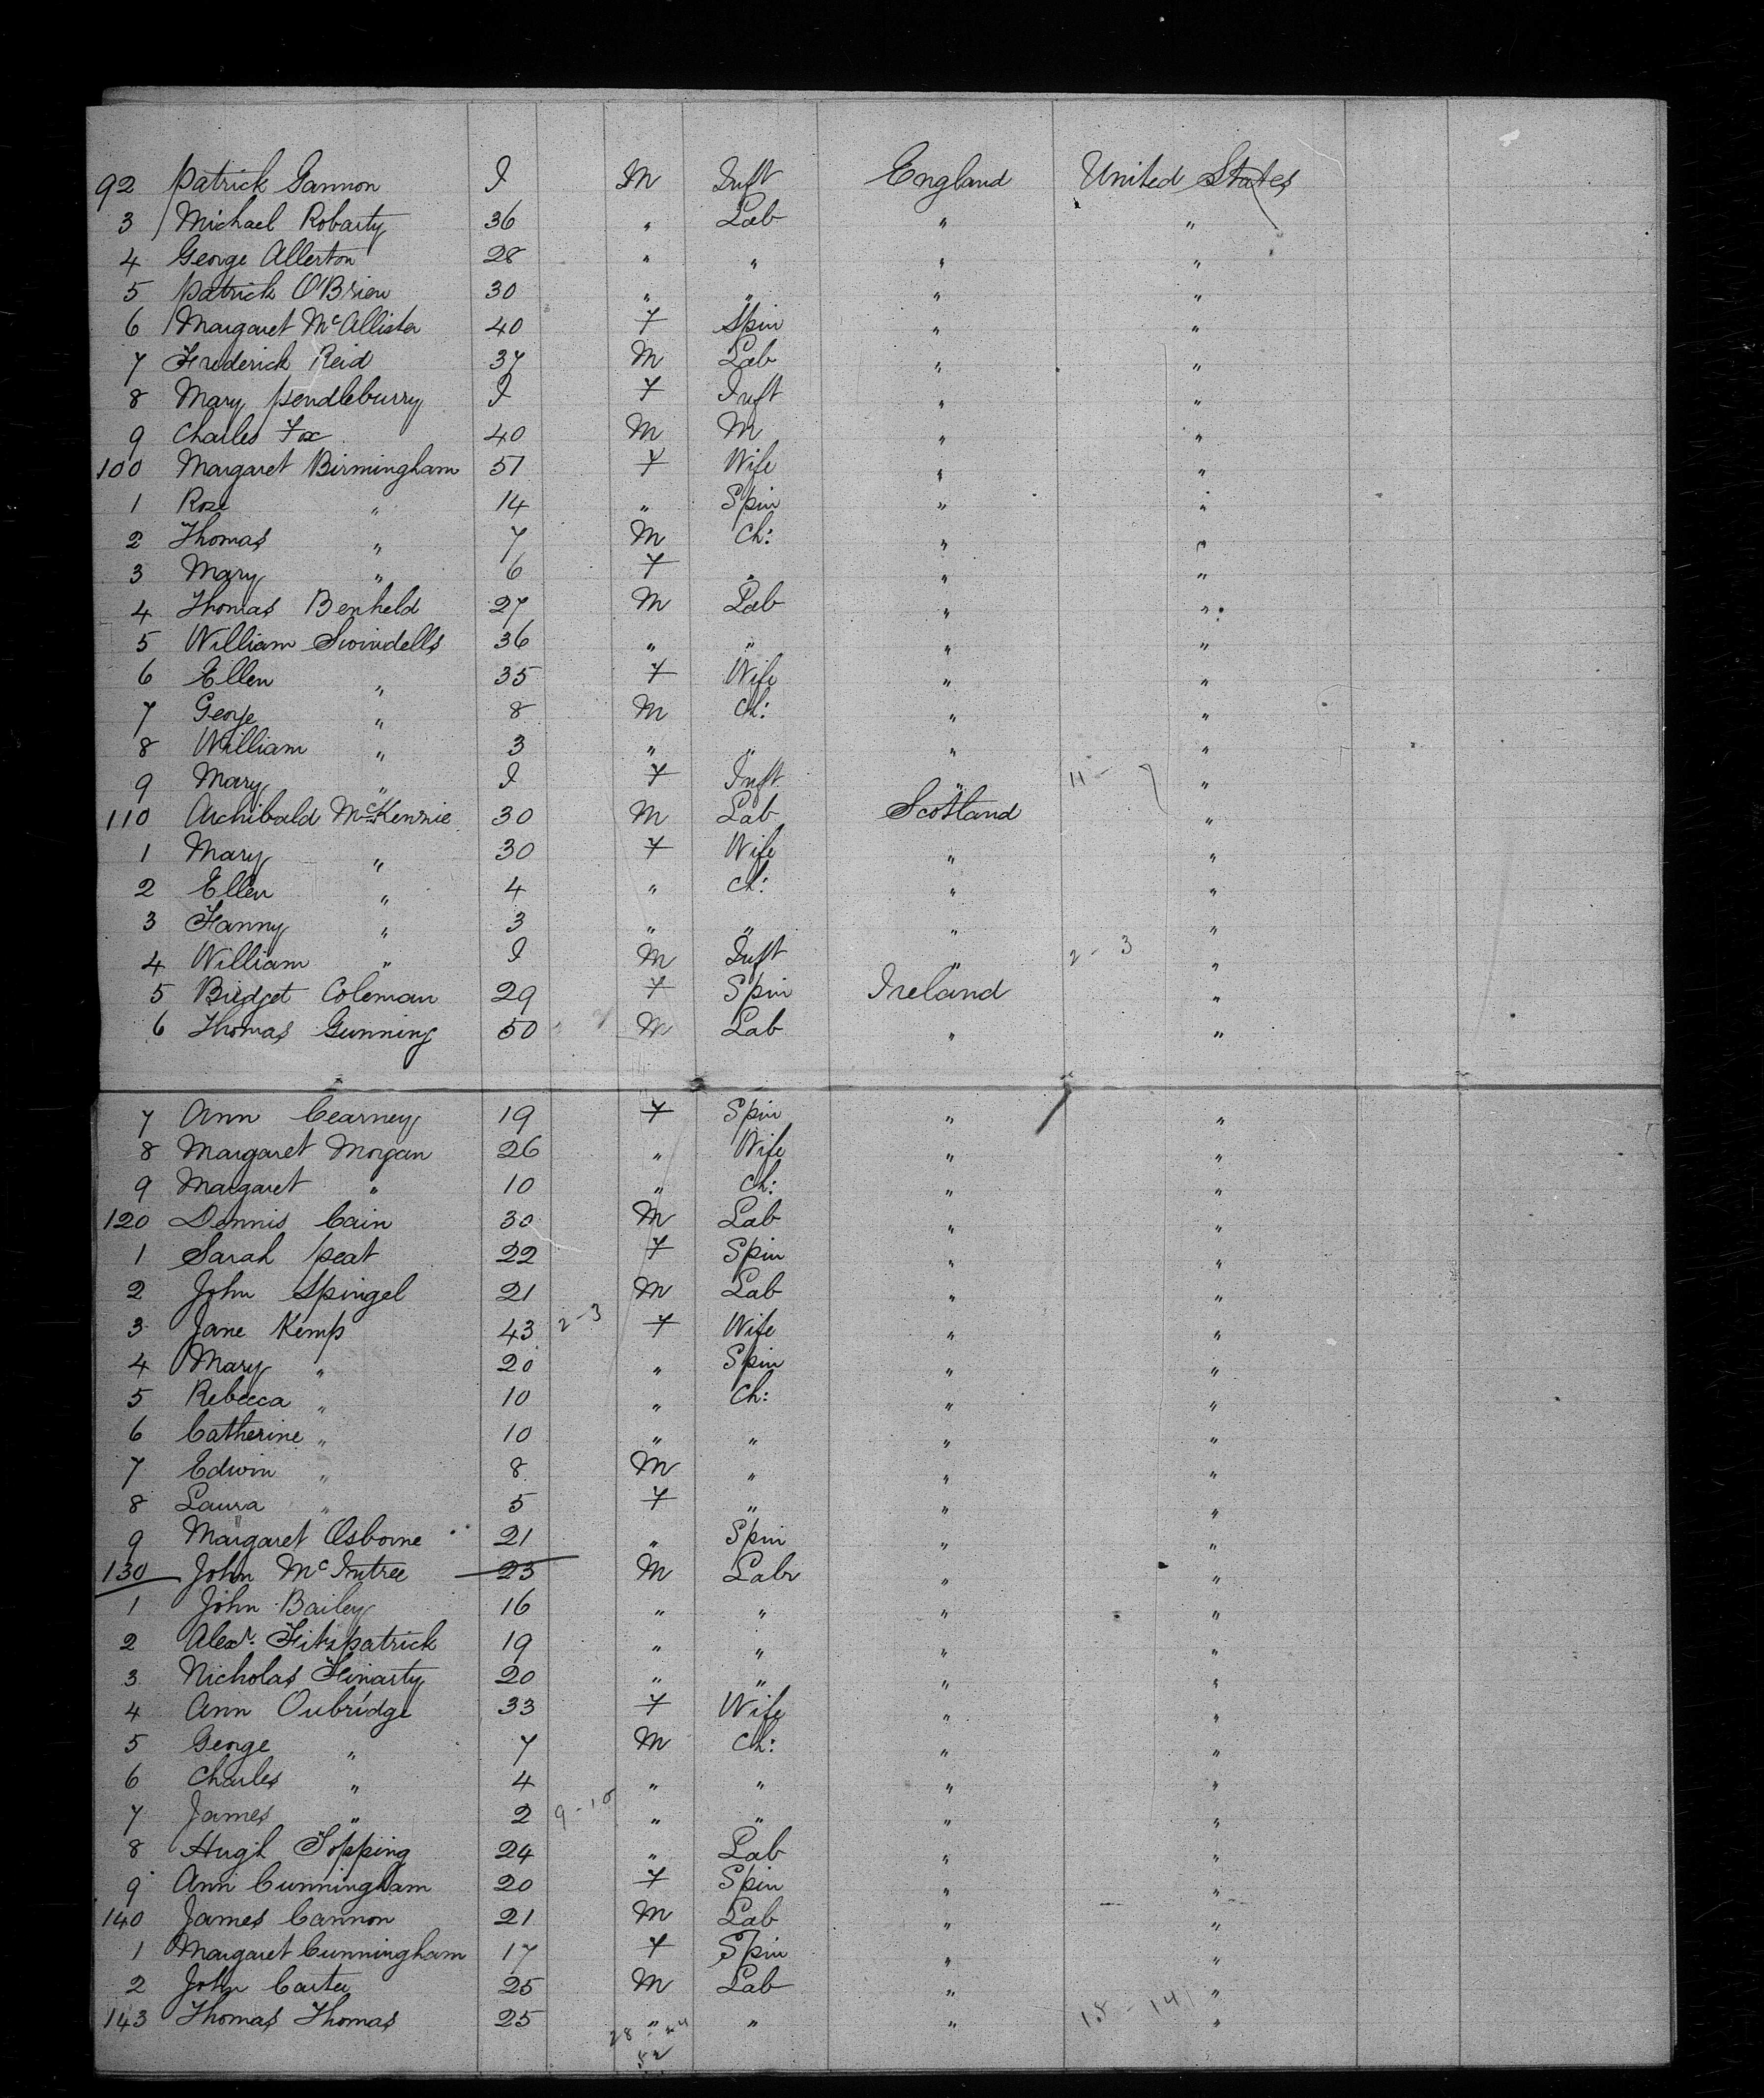 92 Patrick Gannon I M Inft England United States
3 Michael Robarty 36 " Lab " "
4 George Allerton 28 " " " "
5 Patrick O'Brien 30 " " " "
6 Margaret McAllister 40 F Spin " "
7 Frederick Reid 37 M Lab " "
8 Mary Pendleburry I F Inft " "
9 Charles Fox 40 M M " "
100 Margaret Birmingham 51 F Wife " "
1 Rose " 14 " Spin " "
2 Thomas " 7 M Ch: " "
3 Mary " 6 F " " "
4 Thomas Benheld 27 M Lab " "
5 William Swindells 36 " " " "
6 Ellen " 35 F Wife " "
7 George " 8 M Ch: " "
8 William " 3 " " " "
9 Mary " I F Inft " 11 - 7 "
110 Archibald McKenzie 30 M Lab Scotland "
1 Mary " 30 F Wife " "
2 Ellen " 4 " Ch: " "
3 Fanny " 3 " " " "
4 William " I M Inft " 2 - 3 "
5 Bridget Coleman 29 F Spin Ireland "
6 Thomas Gunning 50 M Lab " "
7 Ann Cearney 19 F Spin " "
8 Margaret Morgan 26 " Wife " "
9 Margaret " 10 " Ch: " "
120 Dennis Cain 30 M Lab " "
1 Sarah Peat 22 F Spin " "
2 John Spingel 21 M Lab " "
3 Jane Kemp 43 2-3 F Wife " "
4 Mary " 20 " Spin " "
5 Rebecca " 10 " Ch: " "
6 Catherine " 10 " " " "
7 Edwin " 8 M " " "
8 Laura " 5 F " " "
9 Margaret Osborne 21 " Spin " "
130 John McIntree 23 M Labr " "
1 John Bailey 16 " " " "
2 Alexr. Fitzpatrick 19 " " " "
3 Nicholas Finarty 20 " " " "
4 Ann Oubridge 33 F Wife " "
5 George " 7 M Ch: " "
6 Charles " 4 " " " "
7 James " 2 9-10 " " " "
8 Hugh Topping 24 " Lab " "
9 Ann Cunningham 20 F Spin " "
140 James Cannon 21 M Lab " "
1 Margaret Cunningham 17 F Spin " "
2 John Carter 25 M Lab " "
143 Thomas Thomas 25 " " " 18 - 14 "